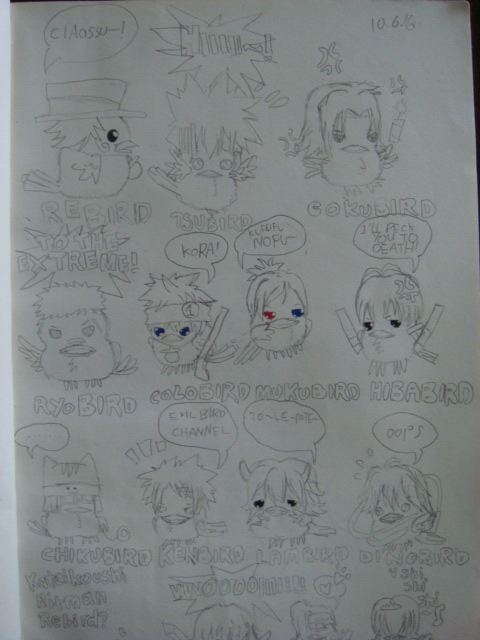 CIAOSSU~!
HIIIII!!
10.6.
REBIRD
TSUBIRD
GOKUBIRD
TO THE
EXTREME!
KORA!
KUFUFU
NOFU~
I'LL PECK
YOU TO
DEATH!
RYOBIRD
COLOBIRD
MUKUBIRD
HIBABIRD
......
EVIL BIRD
CHANNEL
TO~LE~RATE~
OOPS
CHIKUBIRD
KENBIRD
LAMBIRD
DINOBIRD
Hitman
Rebird?